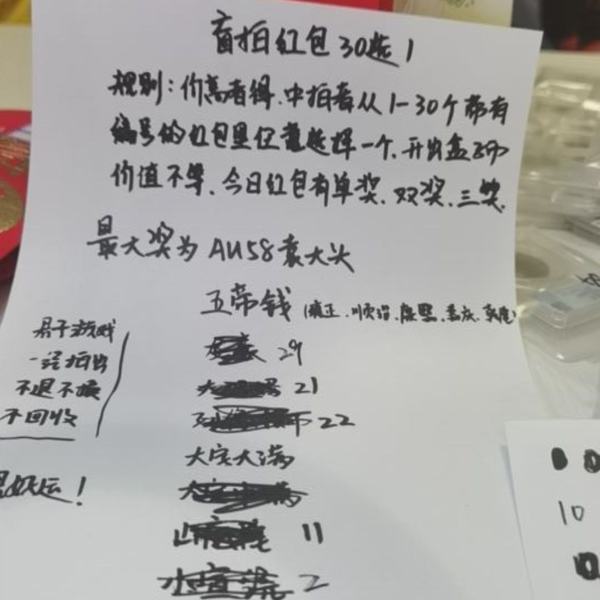 盲拍红包30选1
规则:价高者得.中拍者从1-30个带有
编号的红包里任意选择一个.开出盒子
价值不等.今日红包有单奖.双奖.三奖
最大奖为AU58袁大头
五帝钱(雍正.顺治.康熙.嘉庆.乾隆)
29
21
22
大定大满
11
2
君子游戏
一经拍出
不退不换
不回收
好运!
10